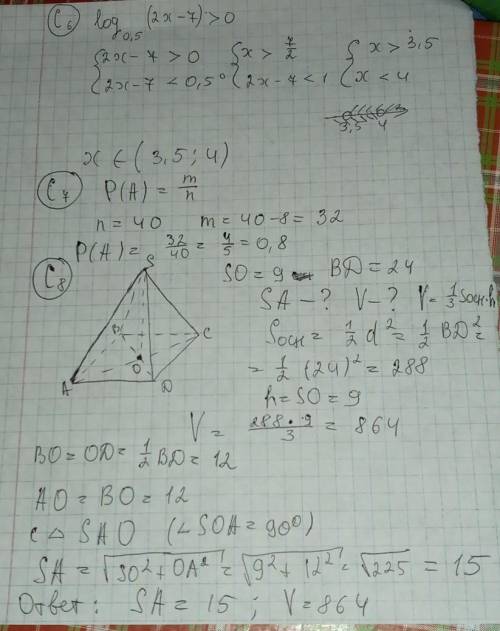 C6 log₀,₅ (2x-7) > 0
{2x-7 > 0 {x > 7/2 {x > 3,5
{2x-7 < 0,5⁰ {2x-7 < 1 {x < 4
3,5 4
x ∈ (3,5; 4)
C7 P(A) = m/n
n = 40 m = 40-8 = 32
P(A) = 32/40 = 4/5 = 0,8
C8 SO = 9 BD = 24
SA - ? V - ? V = 1/3 Sосн·h
Sосн = 1/2 d² = 1/2 BD² =
= 1/2 (24)² = 288
h = SO = 9
V = 288·9/3 = 864
S
B C
O
A D
BO = OD = 1/2 BD = 12
AO = BO = 12
С △ SAO (∠SOA = 90°)
SA = √SO²+OA² = √9²+12² = √225 = 15
Ответ: SA = 15; V = 864